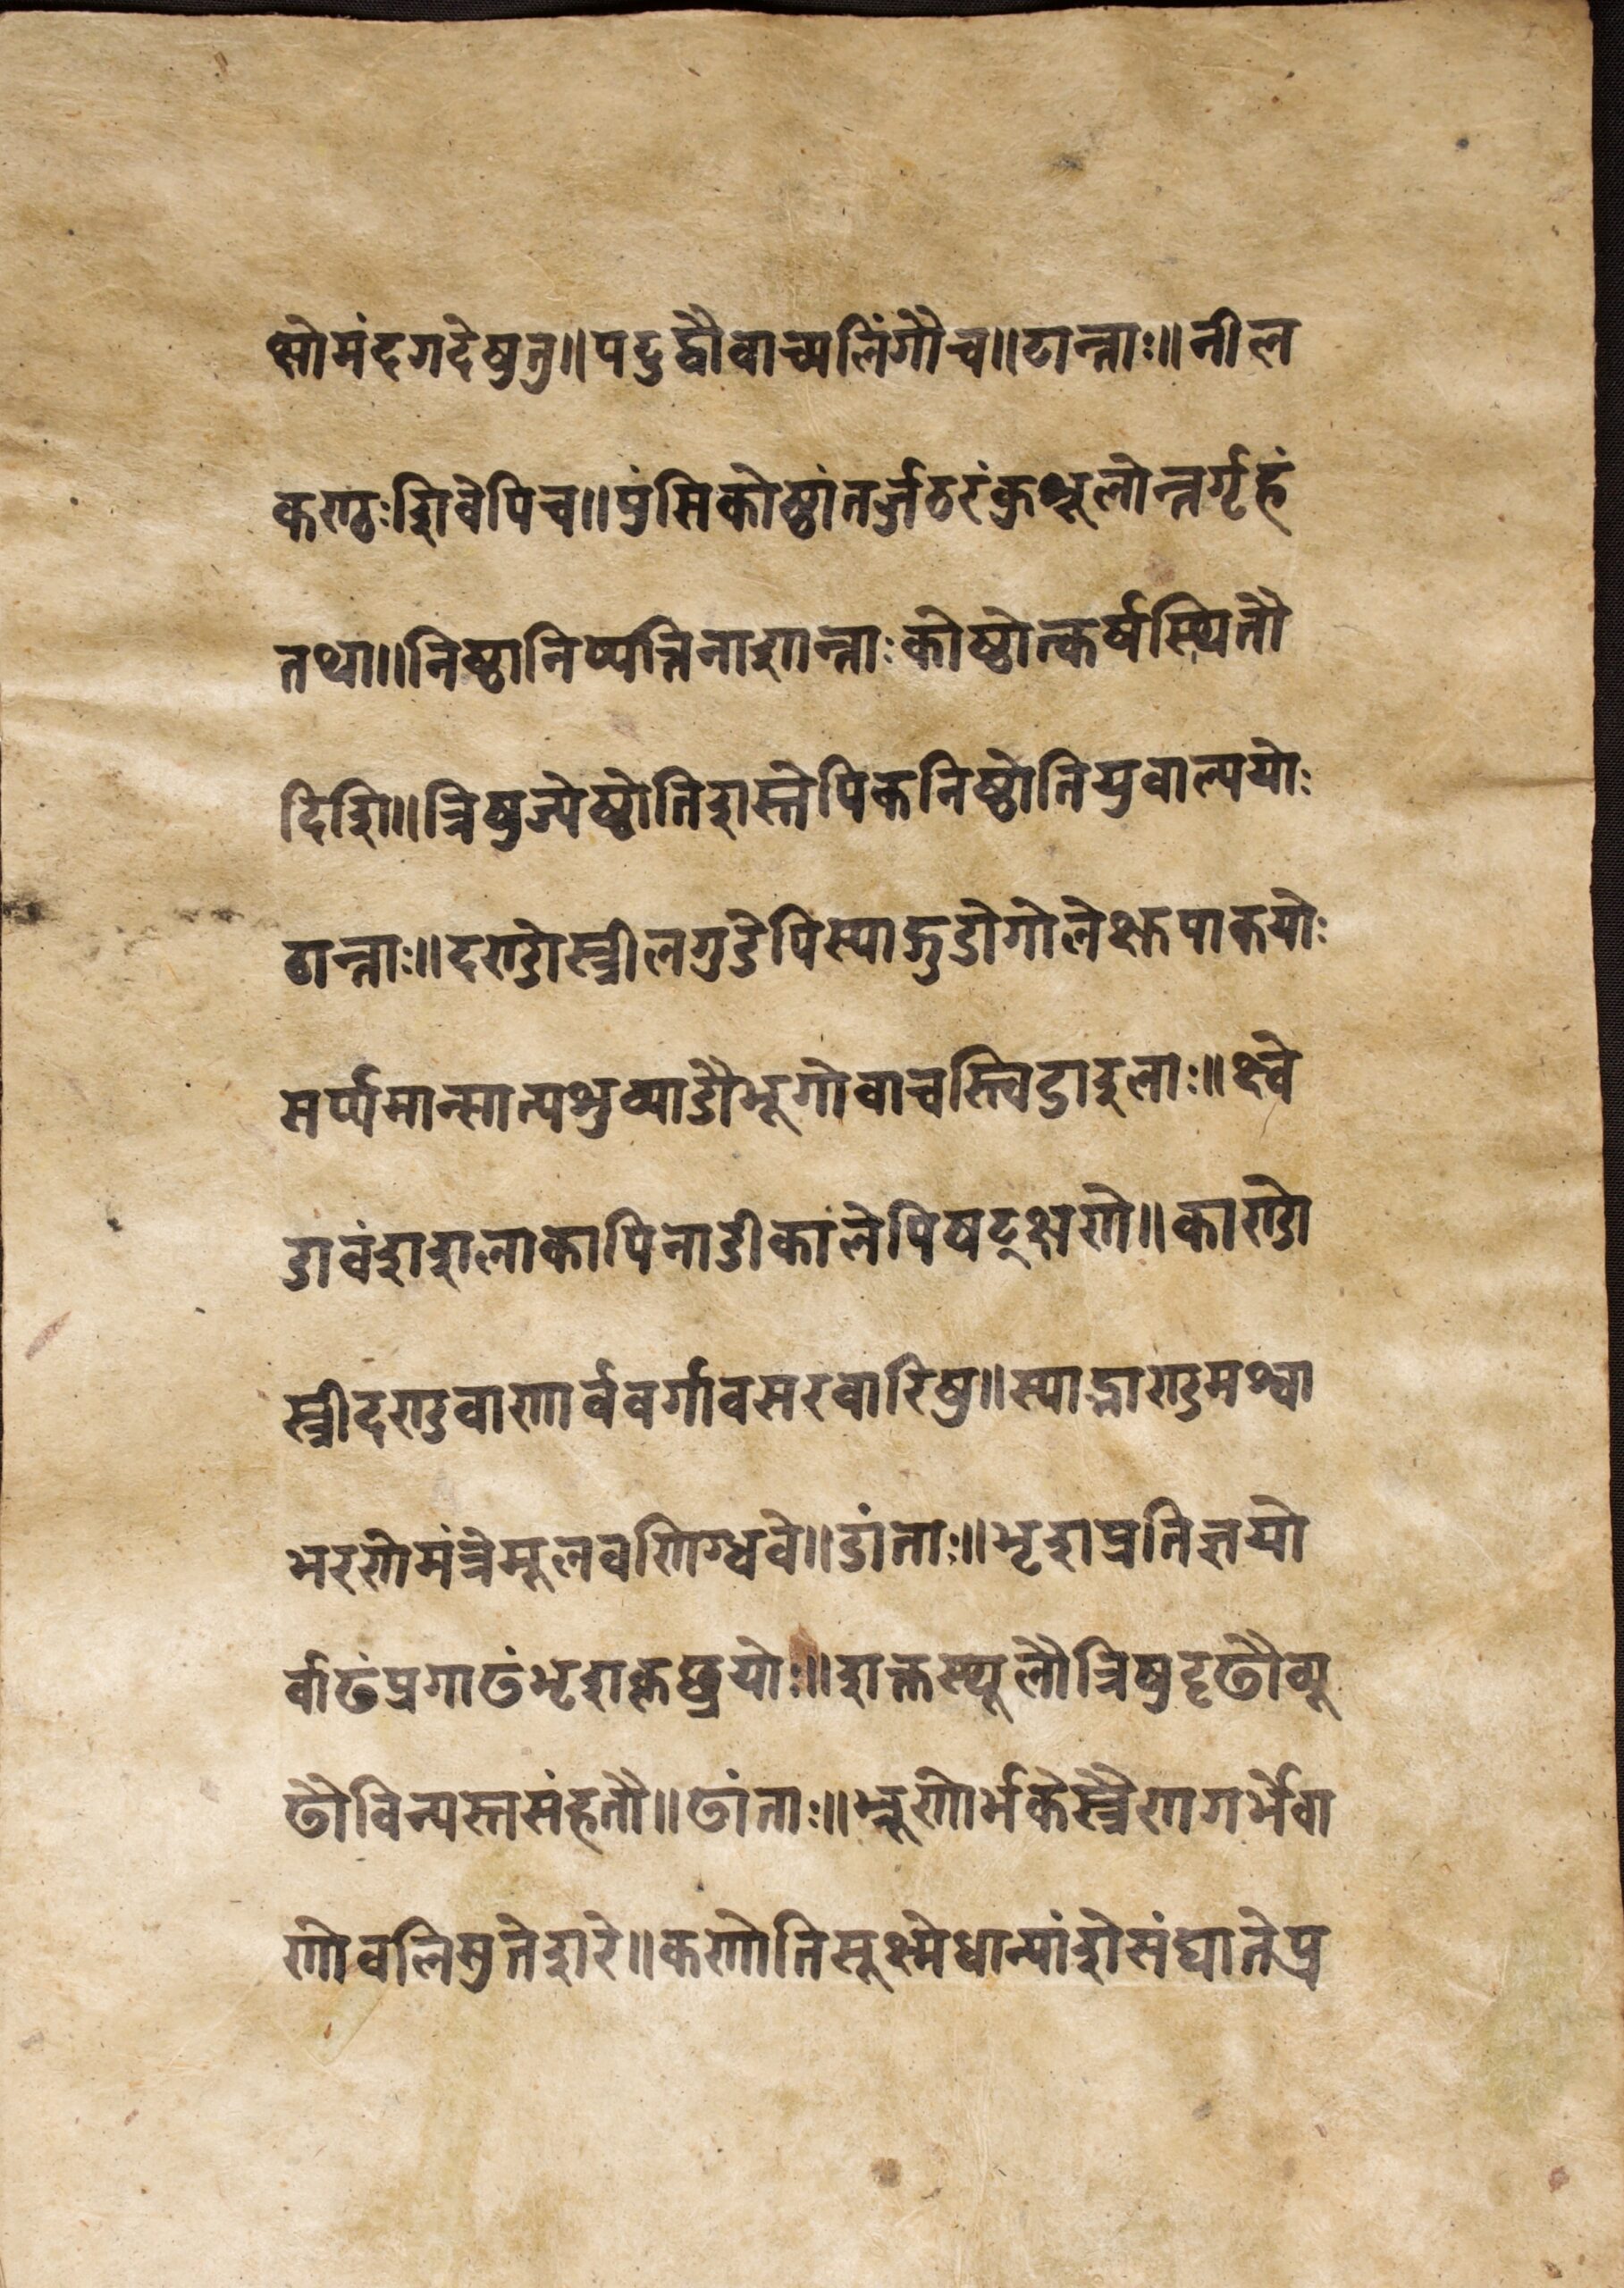 क्षोमंदगदेषुतु॥पटुद्वौवाच्यलिंगौच॥टान्ताः॥नील
कण्ठःशिवेपिच॥पुंसिकोष्ठांतर्ज्जठरंकुश्शूलोन्तर्गृहं
तथा॥निष्ठानिष्पत्तिनाशान्ताःकोष्ठोत्कर्षस्थितौ
दिशि॥त्रिषुज्येष्ठोतिशस्तेपिकनिष्ठोतियुवाल्पयोः
ठान्ताः॥दण्डोस्त्रीलगुडेपिस्याद्गुडोगोलेक्षुपाकयोः
सर्प्पमान्सात्पशुव्याडौभूगोवाचस्त्विडाइलाः॥क्ष्वे
डावंशशलाकापिनाडीकालेपिषट्क्षणे॥काण्डो
स्त्रीदण्डवाणार्ववर्गावसरवारिषु॥स्याद्भाण्डमश्वा
भरणेमंत्रेमूलवणिग्धवे॥डांताः॥भृशप्रतिज्ञयो
र्वाढंप्रगाढंभृशकृछ्रयोः॥शक्तस्थूलौत्रिषुदृढौव्यू
ढौविन्यस्तसंहतौ॥ढांताः॥भ्रूणोर्भकेस्त्रैणगर्भेवा
णोवलिसुतेशरे॥कणोतिसूक्ष्मेधान्यांशेसंघातेप्र